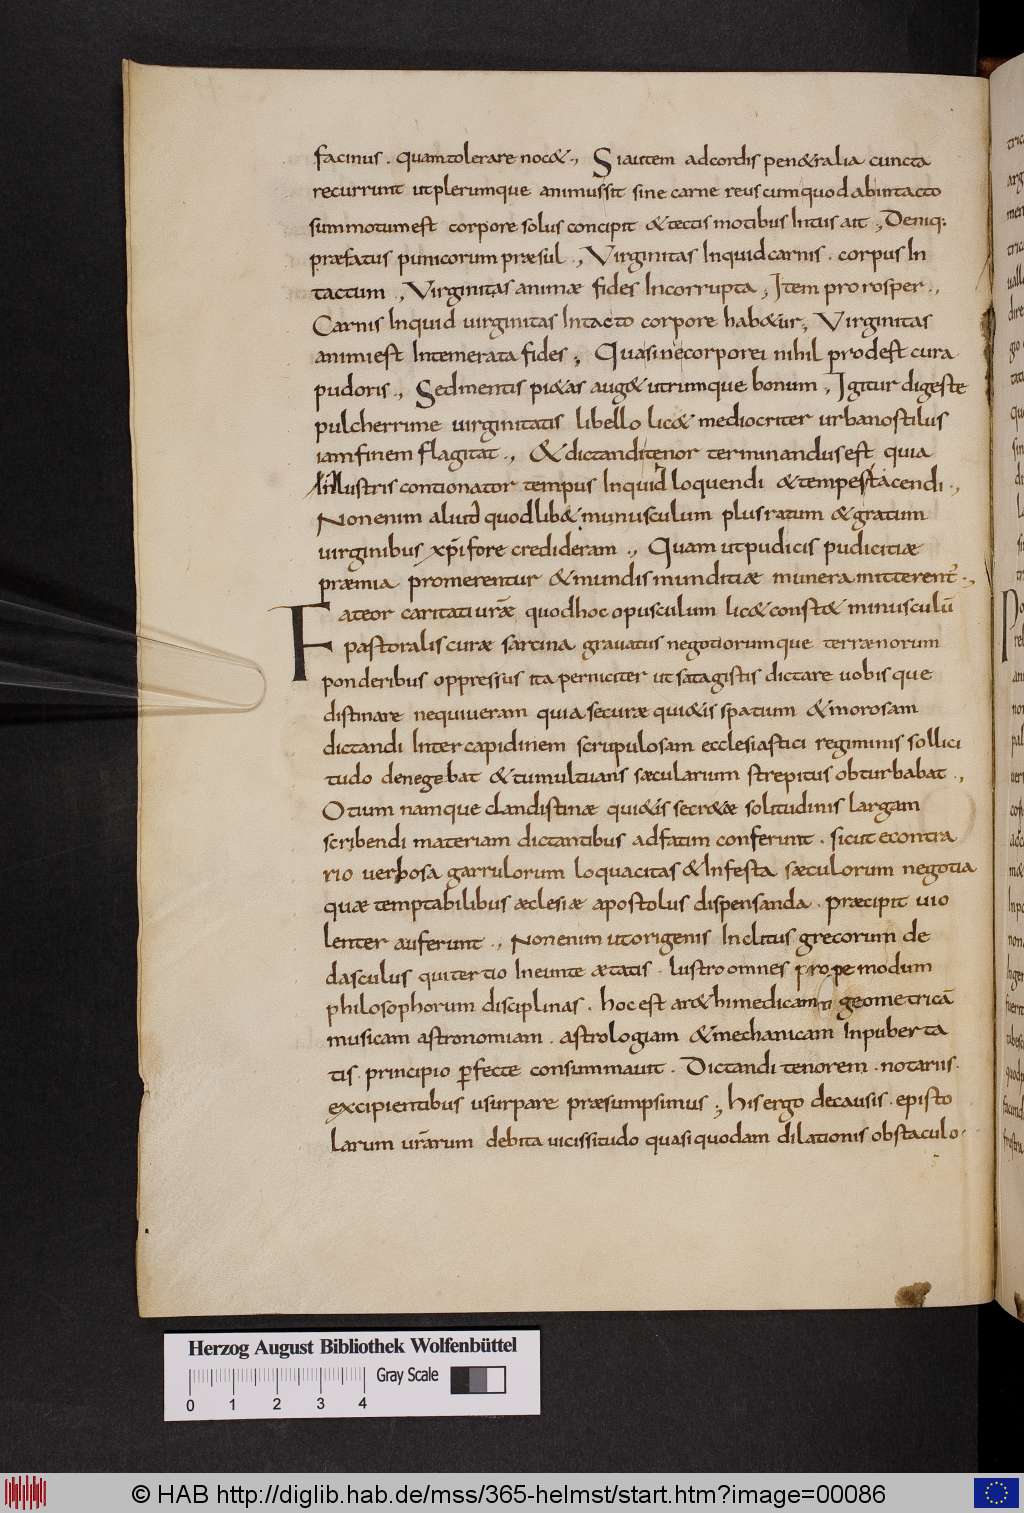 facinus . quam tolerare noc& ., Si autem ad cordis pen&ralia cuncta
recurrunt ut plerumque animus sit sine carne reus cum quod ab intacto
summotum est corpore solus concipit & tectis motibus intus ait ., Deniq:
præfatus punicorum præsul ., Virginitas Inquid carnis . corpus In
tactum ., Virginitas animæ fides Incorrupta ., Item prorosper .,
Carnis Inquid uirginitas Intacto corpore hab&ur ; Virginitas
animi est Intemerata fides ; Quasi ne corporei nihil prodest cura
pudoris ., Sed mentis pi&as aug& utrumque bonum ., Igitur digeste
pulcherrime uirginitatis libello lic& mediocriter urbano stilus
iam finem flagitat ., & dictandi tenor terminandus est quia
Inlustris contionator tempus Inquid loquendi & tempus tacendi .,
Non enim aliud quodlib& munusculum plus ratum & gratum
uirginibus xp̄i fore credideram ., Quam ut pudicis pudicitiæ
præmia promerentur & mundis munditiæ munera mitterent̉ .,
Fateor caritati ur̄æ quod hoc opusculum lic& const& minusculū
pastoralis curæ sarcina grauatus negotiorumque terrænorum
ponderibus oppressus ita perniciter ut satagistis dictare uobisque
distinare nequiueram quia securæ qui&is spatium & morosam
dictandi Intercapidinem scrupulosam ecclesiastici regiminis sollici
tudo denegebat & tumultuans sæcularium strepitus obturbabat .,
Otium namque clandistinæ qui&is secr&æ solitudinis largam
scribendi materiam dictantibus ad fatim conferunt . sicut econtra
rio uerbosa garrulorum loquacitas & Infesta sæculorum negotia
quæ temptabilibus æclesiæ apostolus dispensanda . præcipit uio
lenter auferunt ., Non enim ut origenis Inclitus grecorum de
dasculus qui tertio Ineunte ætatis . lustro omnes prope modum
philosophorum disciplinas . hoc est ar&himedicam geometricā
musicam astronomiam . astrologiam & mechanicam In puberta
tis . principio ꝑfecte consummauit . Dictandi tenorem . notariis .
excipientibus usurpare præsumpsimus ; his ergo de causis . episto
larum ur̄arum debita uicissitudo quasi quodam dilationis obstaculo .
Herzog August Bibliothek Wolfenbüttel
Gray Scale
0 1 2 3 4
© HAB http://diglib.hab.de/mss/365-helmst/start.htm?image=00086